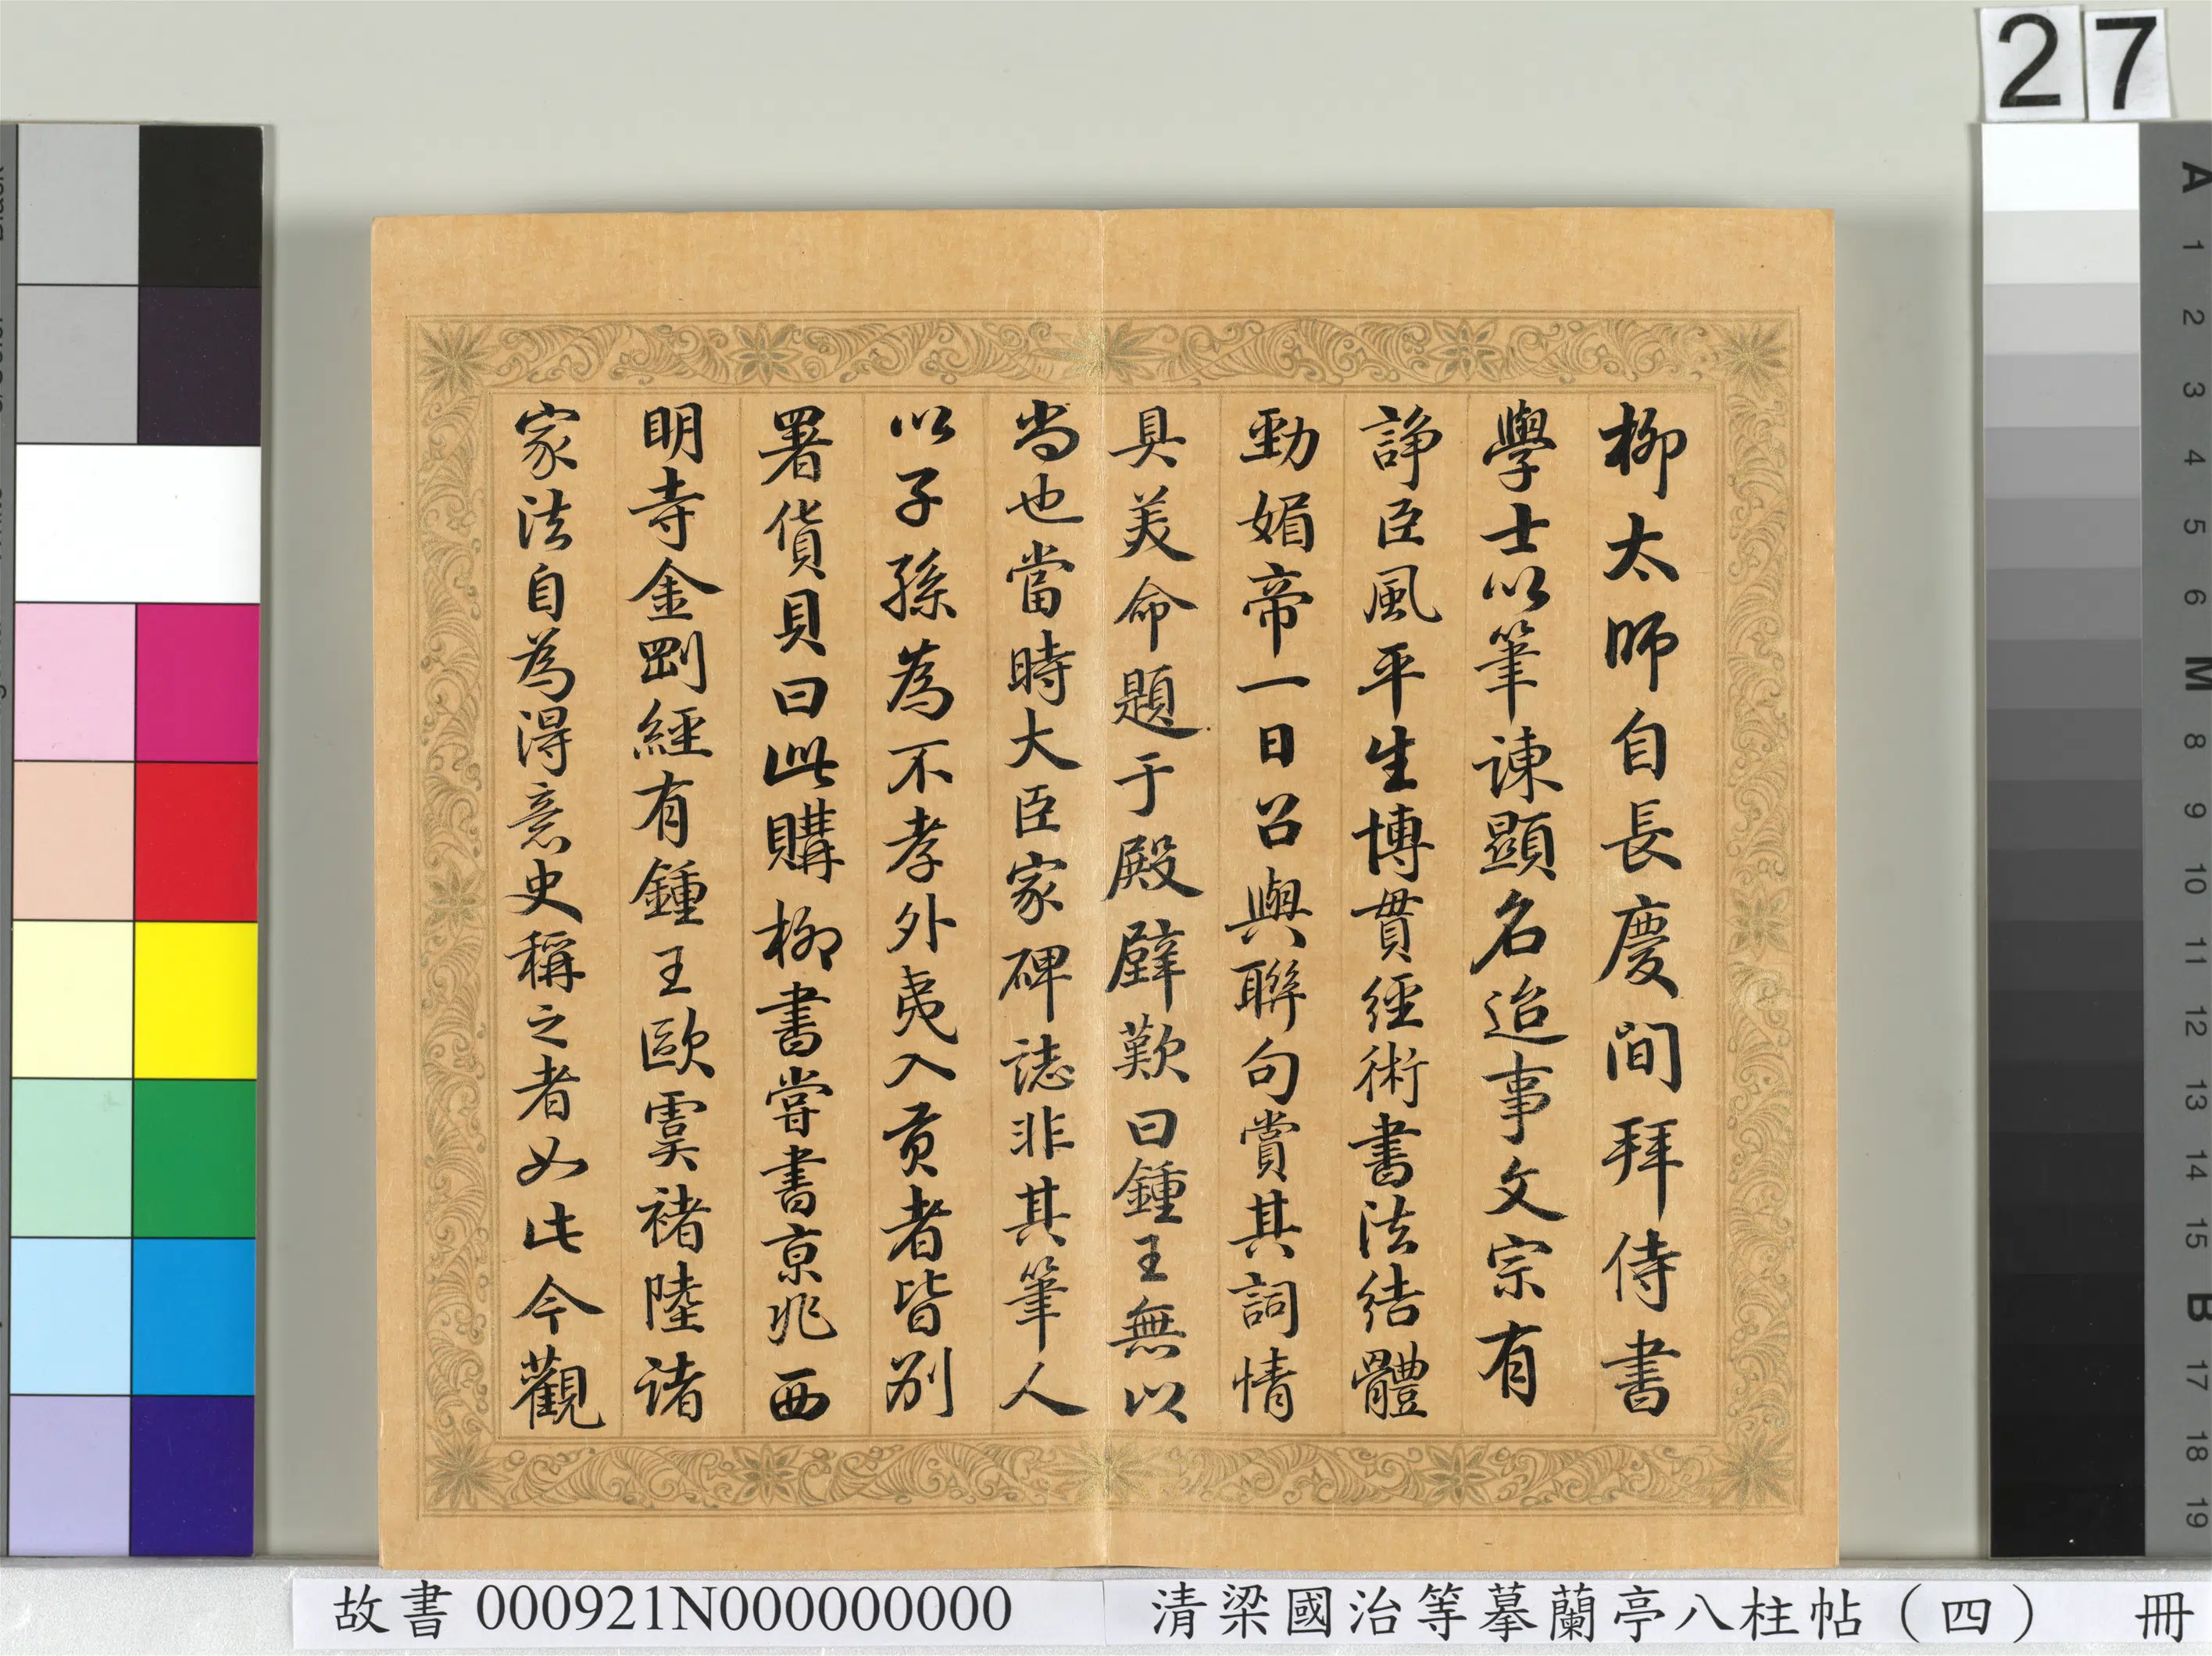 27
柳太師自長慶間拜侍書
學士以筆諫顯名迨事文宗有
諍臣風平生博貫經術書法結體
勁媚帝一日召與聯句賞其詞情
具美命題于殿壁歎曰鍾王無以
尚也當時大臣家碑誌非其筆人
以子孫為不孝外夷入貢者皆別
署貨貝曰此購柳書嘗書京兆西
明寺金剛經有鍾王歐虞褚陸諸
家法自為得意史稱之者如此今觀
A
1
2
3
4
5
6
M
8
9
10
11
12
13
14
15
B
17
18
19
故書 000921N000000000
清梁國治等摹蘭亭八柱帖（四） 冊